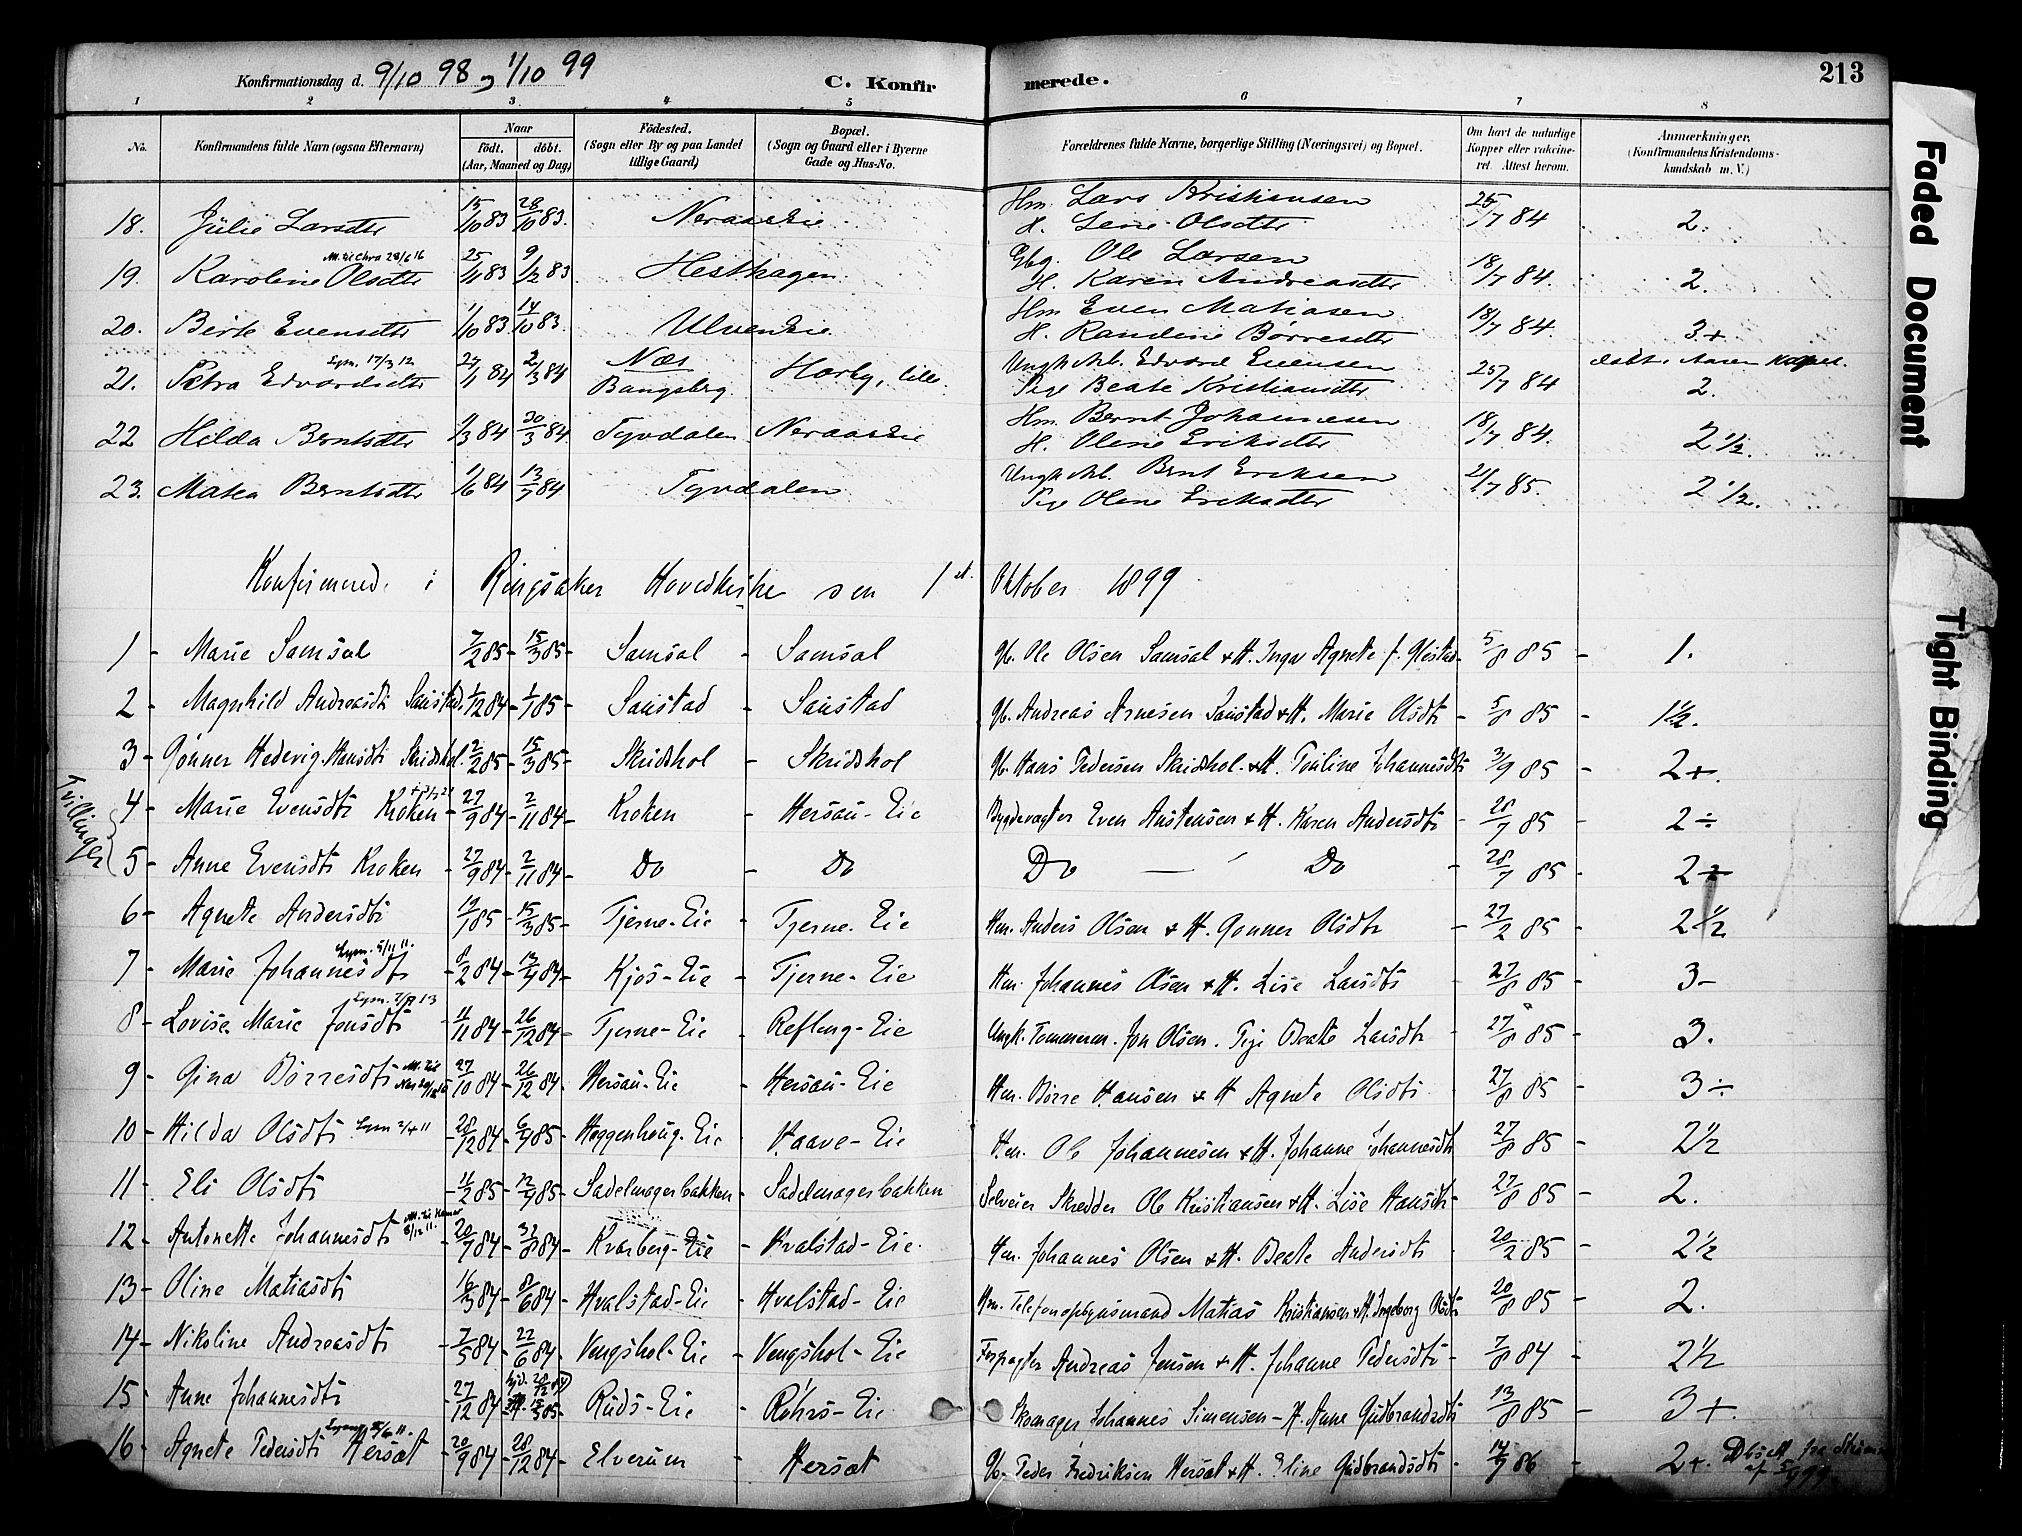 Konfirmationsdag d. 9/10 98 og 1/10 99 C. Konfirmerede. 213
1 2 3 4 5 6 7 8
No. Konfirmandens fulde Navn (ogsaa Efternavn) Naar födt. döbt. (Aar, Maaned og Dag) Födested. (Sogn eller By og paa Landet tillige Gaard) Bopæl. (Sogn og Gaard eller i Byerne Gade og Hus-No. Forældrenes fulde Navne, borgerlige Stilling (Næringsvei) og Bopæl. Om havt de naturlige Kopper eller vakcineret. Attest herom. Anmærkninger, (Konfirmandens Kristendomskundskab m. V.)
18. Julie Larsdtr 15/10 83 28/10 83. Neraaseie Hm. Lars Kristiansen H. Lene Olsdtr 25/7 84 2.
19. Karoline Olsdtr 25/11 83 9/12 83 Hesthagen Gbg. Ole Larsen H. Karen Andreasdtr 18/7 84. 2.
20. Berte Evensdtr 1/10 83 14/10 83. Ulveneie Hm Even Matiasen H. Randine Børresdtr 18/7 84. 3+
21. Petra Edvardsdtr Lysn. 17/3 12 27/1 84 2/3 84 Næs Bangsberg Horby, lille. Ungk Arb. Edvard Evensen Pige Beate Kristiansdtr 25/7 84 2.
22 Hilda Berntsdtr 1/3 84 30/3 84 Tyvdalen Neraaseie Hm. Bernt Johannesen H. Oline Eriksdtr 18/7 84. 2 1/2.
23. Matea Berntsdtr 1/6 84 13/7 84 Tyvdalen Ungk Arb. Bernt Eriksen Pige Oline Eriksdtr 21/7 85. 2 1/2.
Konfirmered i Ringsaker Hovedkirke den 1st. Oktober 1899
1 - Marie Samsal 7/2 85 - 15/3 85 - Samsal - Samsal Gb. Ole Olsen Samsal & H. Inga Agnete f. 5/8 85 - 1.
2 - Magnhild Andreasdtr Saustad 1/12 84 - 1/1 85 - Saustad - Saustad Gb. Andreas Arnesen Saustad & H. Marie Olsdtr - 5/8 85 - 1½.
3 - Gønner Hedevig Hansdtr Skridshol. 2/2 85 - 15/3 85 - Skridshol - Skridshol Gb. Hans Pedersen Skridshol & H. Pauline Johannesdtr 3/9 85 - 2+.
Tvillinger
4 - Marie Evensdtr Kroken - 27/9 84 - 2/11 84 - Kroken - Hersau-Eie Bygdevægter Even Austensen & H. Karen Andersdtr - 28/7 85 - 2÷
5 - Anne Evensdtr Kroken - 27/9 84 - 2/11 84 - Do - Do Do — Do - 28/7 85 - 2+
6 - Agnete Andersdtr 19/1 85 - 15/3 85 - Tjerne-Eie - Tjerne-Eie Hm. Anders Olsen & H. Gønner Olsdtr - 27/2 85 - 2½
7 - Marie Johannesdtr Lysn. 5/11 11. - 8/2 84 - 13/4 84 - Kjos-Eie - Tjerne-Eie Hm. Johannes Olsen & H. Lise Larsdtr - 27/8 85 - 3-
8 - Lovise Marie Jonsdtr - 11/11 84 - 26/12 84 - Tjerne-Eie - Refling-Eie Ungk. Tømmerm. Jon Olsen. Pige Beate Larsdtr - 27/8 85 - 3.
9 - Gina Børresdtr - 27/10 84 - 26/12 84 - Hersau-Eie - Hersau-Eie Hm. Børre Hansen & H Agnete Olsdtr 27/8 85 - 3÷
10 - Hilda Olsdtr - 28/12 84 - 6/4 85 - Heggenhoug-Eie - Haave-Eie Hm. Ole Johannesen & H. Johanne Johannesdtr 27/8 85 - 2½
11 - Eli Olsdtr - 11/2 85 - 12/4 85 - Sadelmagerbakken - Sadelmagerbakken Selveier Skrædder Ole Kristiansen & H. Lise Hansdtr - 27/8 85 - 2.
12 - Antonette Johannesdtr - 20/7 84 - 31/8 84 - Kvarberg-Eie - Hvalstad-Eie. Hm. Johannes Olsen & H. Beate Andersdtr 20/2 85 - 2½
13 - Oline Matiasdtr 16/3 84 - 8/6 84 - Hvalstad-Eie - Hvalstad-Eie Hm. Telefonopsynsmand Matias Kristiansen & H. Ingeborg Olsdtr 20/8 85 - 2.
14 - Nikoline Andreasdtr - 7/5 84 - 22/6 84 - Vengshol-Eie - Vengshol-Eie Forpagter Andreas Jensen & H. Johanne Pedersdtr - 7/8 84 - 2½
15 - Anne Johannesdtr - 27/12 84 Ruds-Eie - Røhrs-Eie Skomager Johannes Simensen - H. Anne Gudbrandsdtr 13/8 85 - 3+.
16 - Agnete Pedersdtr Hersæt - 20/9 84 - 28/12 84 - Elverum - Hersæt Gb. Peder Fredriksen Hersæt & H. Eline Gudbrandsdtr - 14/7 86 - 2+.
Faded Document
Tight Binding